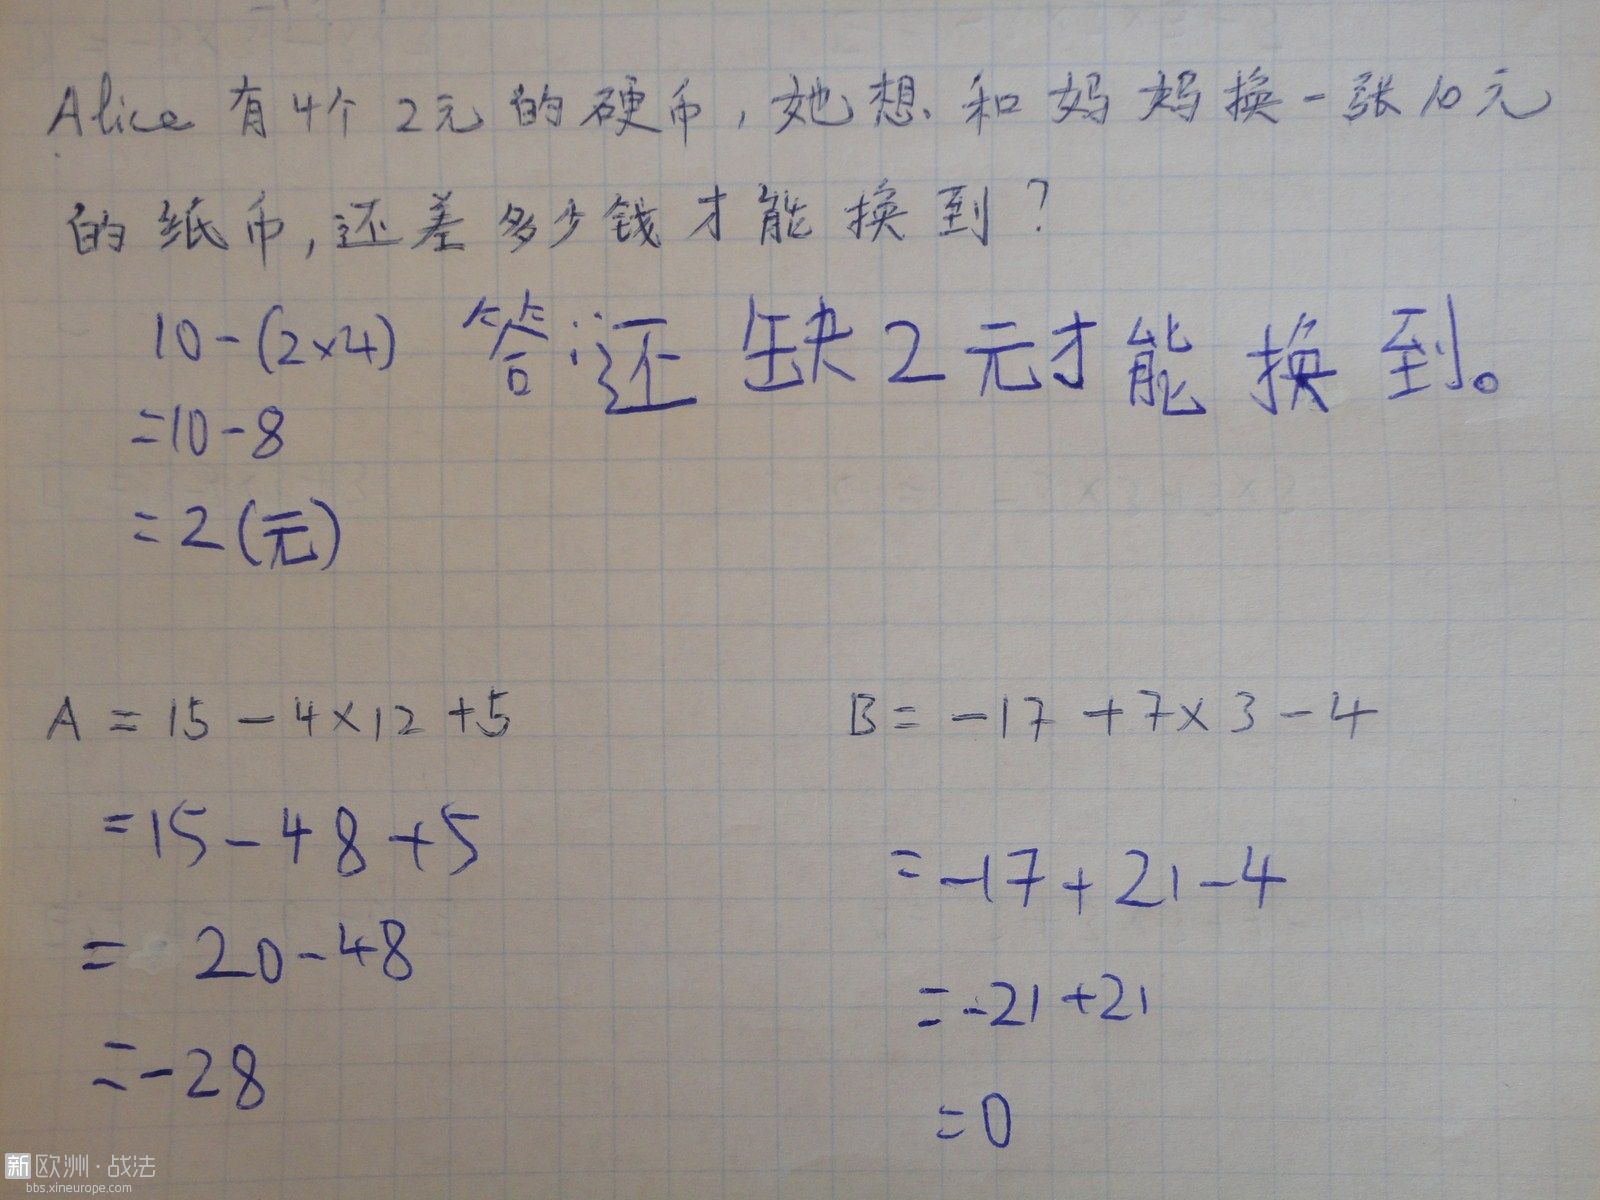 Alice 有4个 2元 的硬币，她想 和妈妈换一张10元
的纸币，还差多少钱才能换到？
10-(2×4) 答：还缺2元才能换到。
=10-8
=2(元)
A = 15 - 4×12 +5
=15-48+5
= 20-48
=-28
B = -17 +7×3 -4
=-17+21-4
=-21+21
=0
新欧洲·战法
bbs.xineurope.com